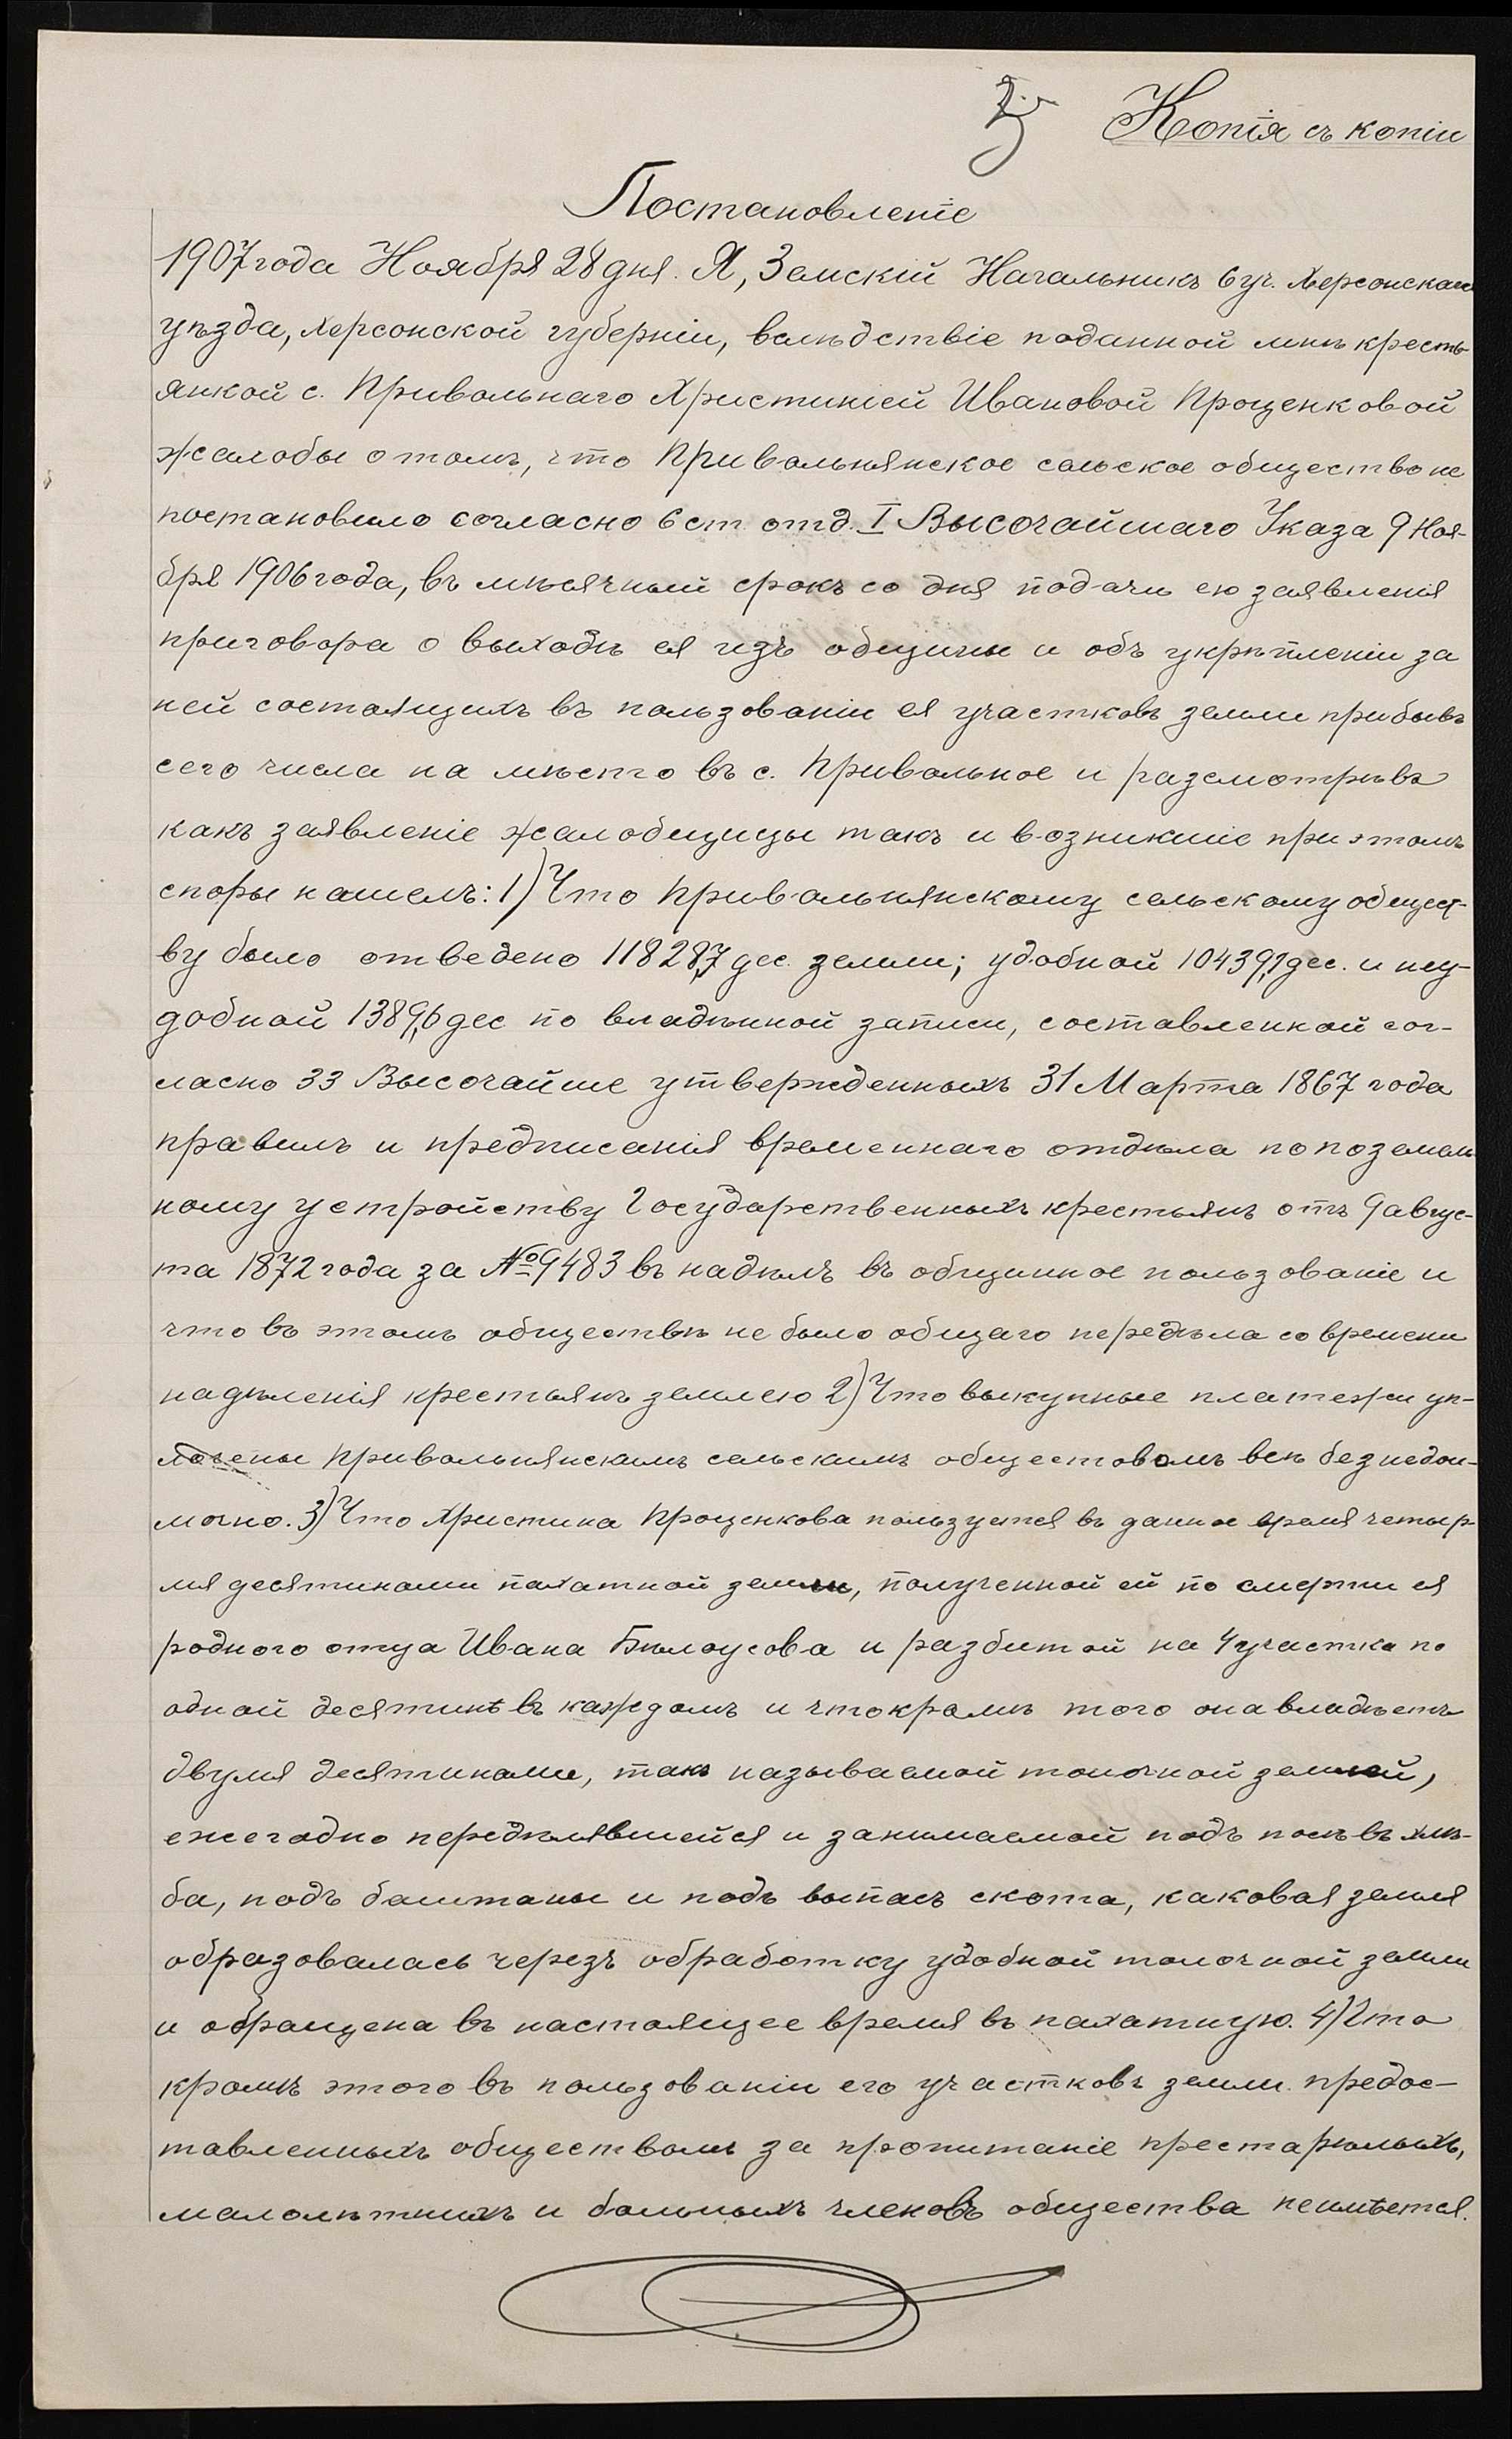 Копія съ копіи
Постановленіе
1907 года Ноября 28 дня. Я, Земскій Начальникъ 6 уч. Херсонскаго
уѣзда, Херсонской губерніи, вслѣдствіе поданной мнѣ кресть-
янкой с. Привольнаго Христиніей Ивановой Проценковой
жалобы о томъ, что Привольнянское сельское общество не
постановило согласно 6 ст. отд. I Высочайшаго Указа 9 Ноя-
бря 1906 года, въ мѣсячный срокъ со дня подачи ею заявленія
приговора о выходѣ ея изъ общины и объ укрѣпленіи за
ней состоящихъ въ пользованіи ея участковъ земли прибывъ
сего числа на мѣсто въ с. Привольное и разсмотрѣвъ
какъ заявленіе жалобщицы такъ и возникшіе при этомъ
споры нашелъ: 1) Что Привольнянскому сельскому общест-
ву было отведено 11828,7 дес. земли; удобной 10439,1 дес. и неу-
добной 1389,6 дес по владѣнной записи, составленной сог-
ласно 33 Высочайше утвержденныхъ 31 Марта 1867 года
правилъ и предписанія временнаго отдѣла по поземель
ному устройству Государственныхъ крестьянъ отъ 9 авгус-
та 1872 года за № 9483 въ надѣлъ въ общинное пользованіе и
что въ этомъ обществѣ не было общаго передѣла со времени
надѣленія крестьянъ землею 2) Что выкупные платежи уп-
лочены Привольнянскимъ сельскимъ обществомъ всѣ безнедои-
мочно. 3) Что Христина Проценкова пользуется въ данное время четыр-
мя десятинами пахатной земли, полученной ей по смерти ея
родного отца Ивана Бѣлоусова и разбитой на 4 участка по
одной десятинѣ въ каждомъ и что кромѣ того она владѣетъ
двумя десятинами, такъ называемой толочной землей,
ежегодно передѣлявшейся и занимаемой подъ посѣвъ хлѣ-
ба, подъ баштаны и подъ выпасъ скота, каковая земля
образовалась черезъ обработку удобной толочной земли
и обращена въ настоящее время въ пахатную. 4) Что
кромѣ этого въ пользованіи его участковъ земли предос-
тавленныхъ обществомъ за пропитаніе престарѣлыхъ,
малолѣтнихъ и больныхъ членовъ общества неимѣется.